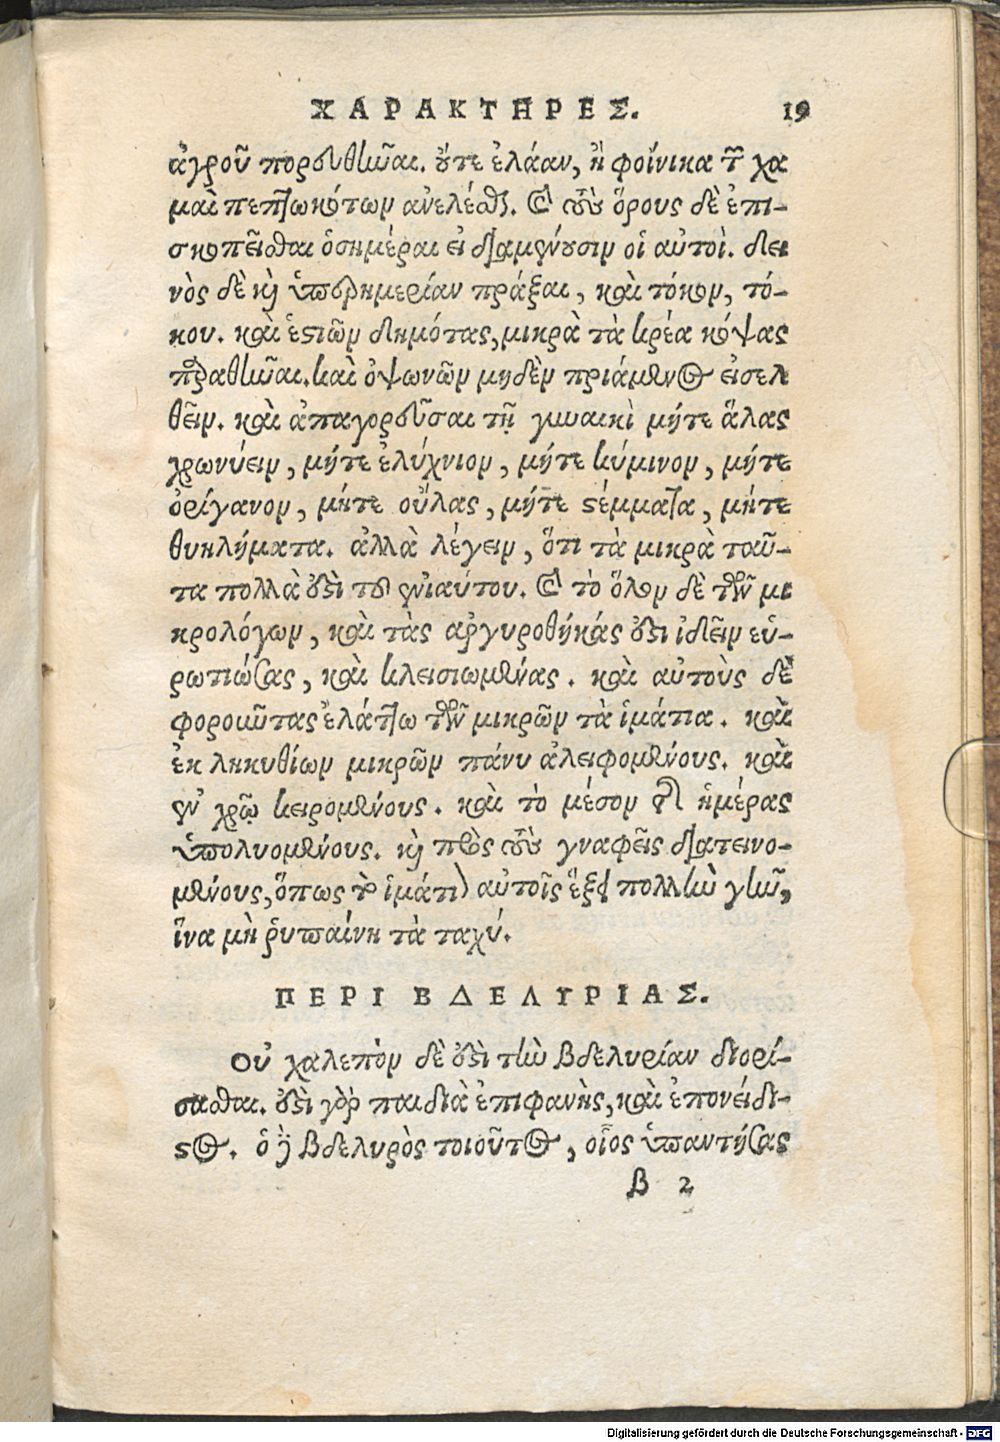 ΧΑΡΑΚΤΗΡΕΣ. 19
ἀγροῦ πορευθῆναι. οὔτε ἐλάαν, ἢ φοίνικα τῶν χα
μαὶ πεπτωκότων ἀνελέσθαι. καὶ τοὺς ὅρους δὲ ἐπι-
σκοπεῖσθαι ὁσημέραι εἰ διαμένουσιν οἱ αὐτοί. δει
νὸς δὲ καὶ ὑπερημερίαν πράξαι, καὶ τόκον, τό-
κου. καὶ ἑστιῶν δημότας, μικρὰ τὰ κρέα κόψας
παραθῆναι. καὶ ὀψωνῶν μηδὲν πριάμενος εἰσελ
θεῖν. καὶ ἀπαγορεῦσαι τῇ γυναικὶ μήτε ἅλας
χρωνύειν, μήτε ἐλύχνιον, μήτε κύμινον, μήτε
ὀρίγανον, μήτε οὔλας, μήτε στέμματα, μήτε
θυηλήματα. ἀλλὰ λέγειν, ὅτι τὰ μικρὰ ταῦ-
τα πολλὰ ἐστὶ τοῦ ἐνιαύτου. καὶ τὸ ὅλον δὲ τῶν μι
κρολόγων, καὶ τὰς ἀργυροθήκας ἔστι ἰδεῖν εὑ-
ρωτιώσας, καὶ κλεισιωμένας. καὶ αὐτοὺς δὲ
φοροῦντας ἐλάττω τῶν μικρῶν τὰ ἱμάτια. καὶ
ἐκ ληκυθίων μικρῶν πάνυ ἀλειφομένους. καὶ
ἐν χρῷ κειρομένους. καὶ τὸ μέσον τῆς ἡμέρας
ὑπολυομένους. καὶ πρὸς τοὺς γναφεῖς διατεινο-
μένους, ὅπως τὸ ἱμάτιον αὐτοῖς ἕξει πολλὴν γῆν,
ἵνα μὴ ῥυπαίνη τὰ ταχύ.
ΠΕΡΙ ΒΔΕΛΥΡΙΑΣ.
Οὐ χαλεπὸν δὲ ἐστὶ τὴν βδελυρίαν διορί-
σασθαι. ἔστι γὰρ παιδιὰ ἐπιφανὴς, καὶ ἐπονείδι-
στος. ὁ δὲ βδελυρὸς τοιοῦτος, οἷος ὑπαντήσας
β 2
Digitalisierung gefördert durch die Deutsche Forschungsgemeinschaft - DFG